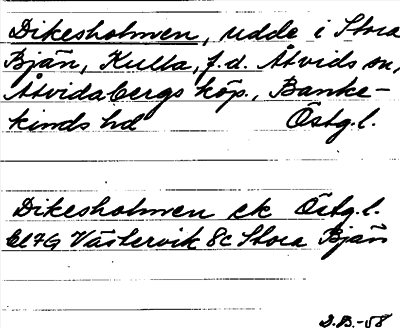 Dikesholmen, udde i Stora
Bjän, Kulla, f.d. Åtvids sn,
Åtvidabergs köp., Banke-
kinds hd Östg.l.
Dikesholmen ek Östg.l.
Västervik 8c Stora Bjän
D.B.-58